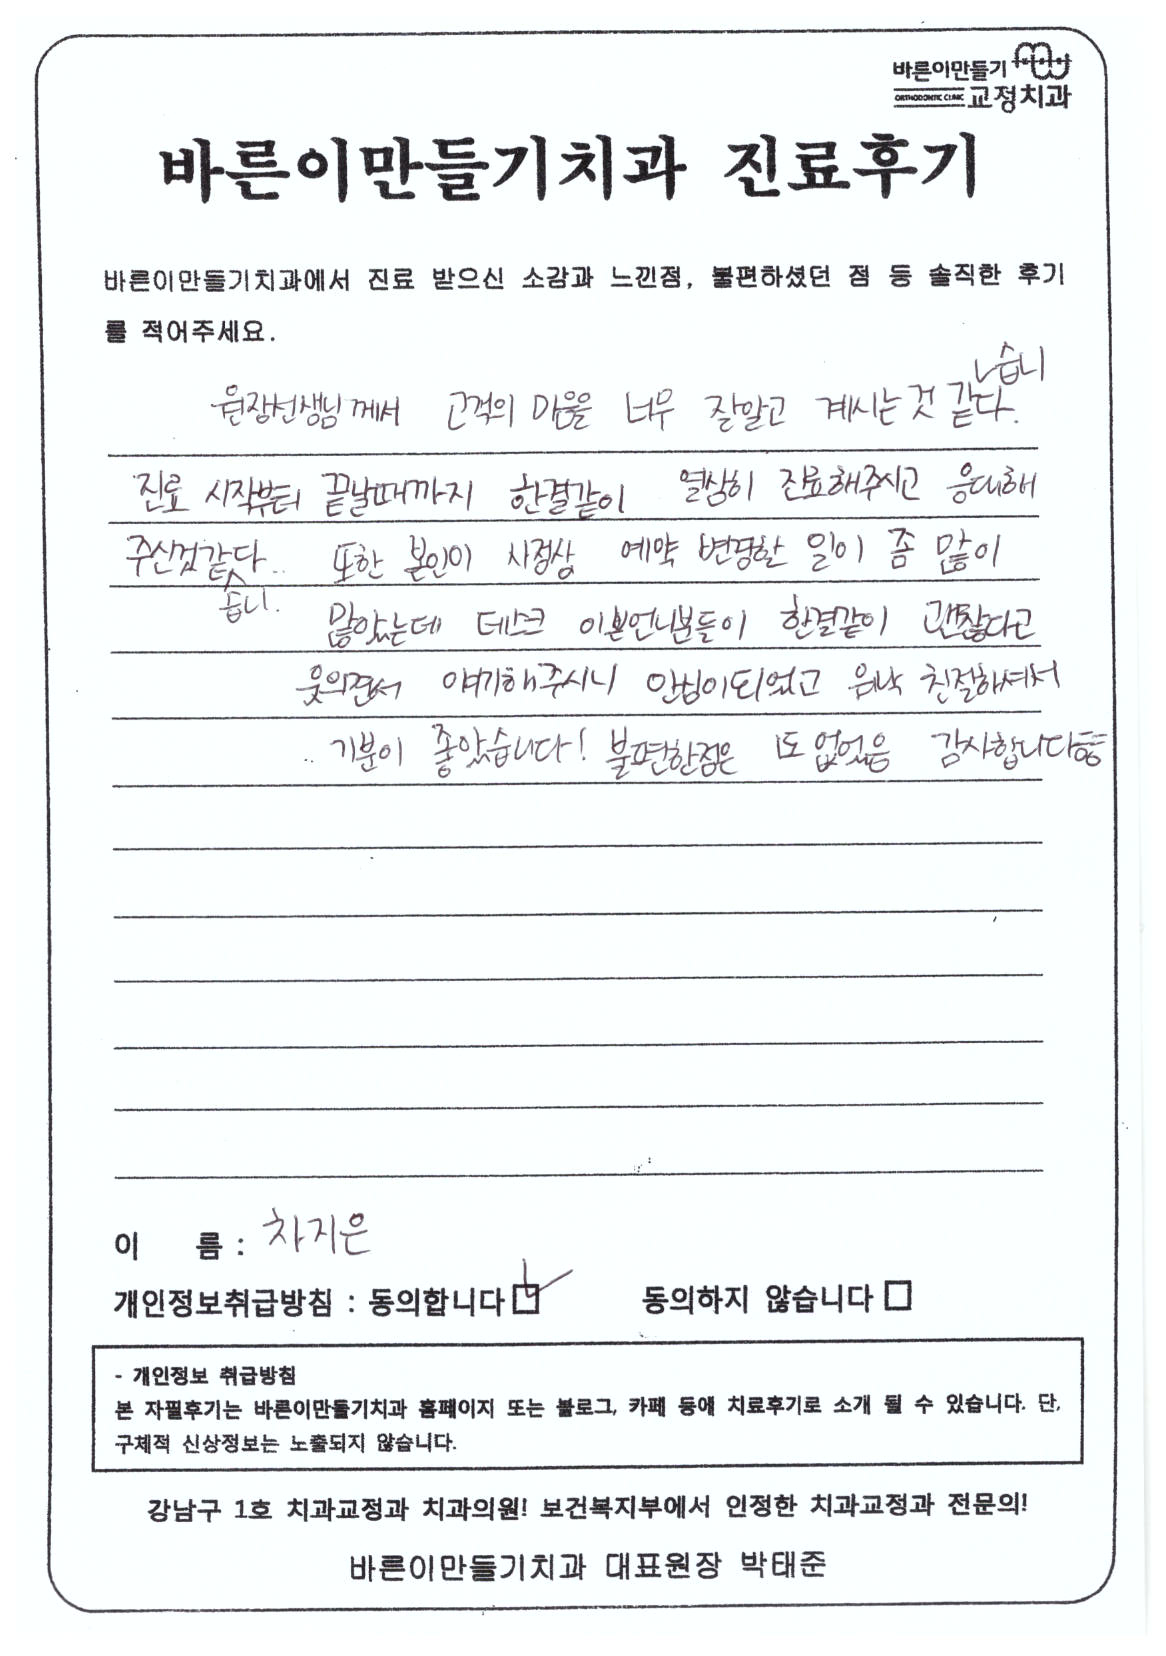 바른이만들기
ORTHODONTIC CLINIC 교정치과
바른이만들기치과 진료후기
바른이만들기치과에서 진료 받으신 소감과 느낀점, 불편하셨던 점 등 솔직한 후기
를 적어주세요.
습니
원장선생님께서 고객의 마음을 너무 잘알고 계시는것 같다.
진료 시작부터 끝날때까지 한결같이 열심히 진료해주시고 응대해
주신것같다.. 또한 본인이 사정상 예약 변경한 일이 좀 많이
습니.
많았는데 데스크 이쁜언니분들이 한결같이 괜찮다고
웃으면서 얘기해주시니 안심이되었고 친절하셔서
기분이 좋았습니다! 불편한점은 없었음 감사합니다
이 름 : 차지은
개인정보취급방침 : 동의합니다 동의하지 않습니다
- 개인정보 취급방침
본 자필후기는 바른이만들기치과 홈페이지 또는 블로그, 카페 등에 치료후기로 소개 될 수 있습니다. 단,
구체적 신상정보는 노출되지 않습니다.
강남구 1호 치과교정과 치과의원! 보건복지부에서 인정한 치과교정과 전문의!
바른이만들기치과 대표원장 박태준